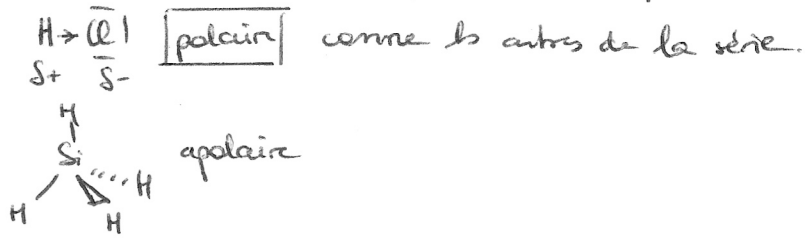 H → Cl polaire comme les autres de la série.
δ+ δ-
H
Si apolaire
H
H H